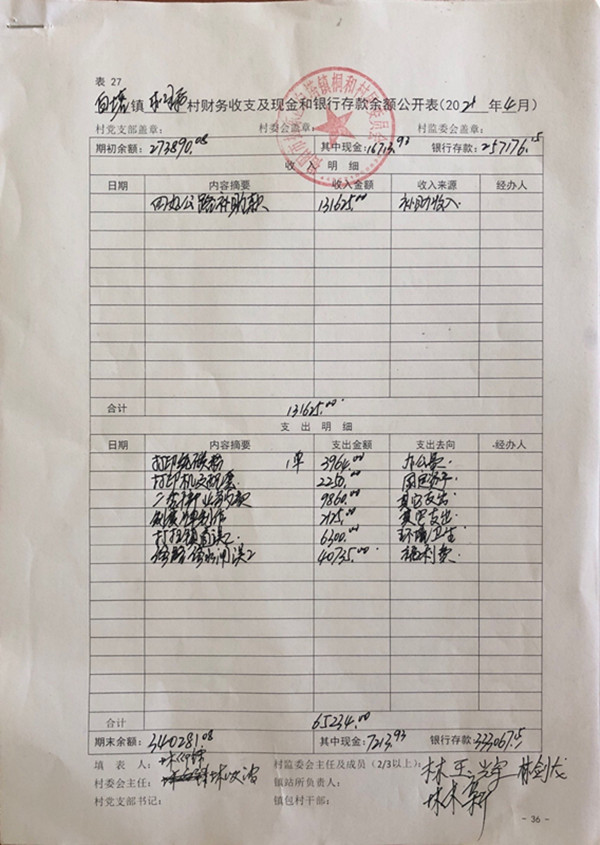 表 27
白塔镇 桐和村财务收支及现金和银行存款余额公开表(2021年4月)
村党支部盖章: 村委会盖章: 村监委会盖章:
期初余额:273890.08 其中现金:16713.93 银行存款:257176.15
收 入 明 细
日期 内容摘要 收入金额 收入来源 经办人
四好公路补助款 131625.00 补助收入
合计 131625.00
支 出 明 细
日期 内容摘要 支出金额 支出去向 经办人
打印 1单 3964.00 办公费
打印机 2250.00 固定资产
9860.00 其它支出
制作 2125.00 其它支出
6300.00 环境卫生
40735.00 福利费
合计 65234.00
期末余额:340281.08 其中现金:7213.93 银行存款:333067.15
填 表 人: 村监委会主任及成员(2/3以上):
村委会主任: 镇站所负责人:
村党支部书记: 镇包村干部:
- 36 -